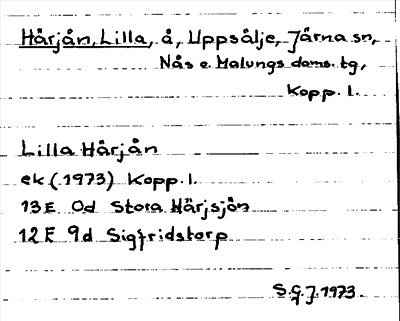 Hårjån, Lilla, å, Uppsälje, Järna sn,
Nås o. Malungs doms. tg,
Kopp. l.
Lilla Hårjån
ek (1973) Kopp. l.
13E 0d Stora Härjsjön
12E 9d Sigfridstorp
S.G.J. 1973.